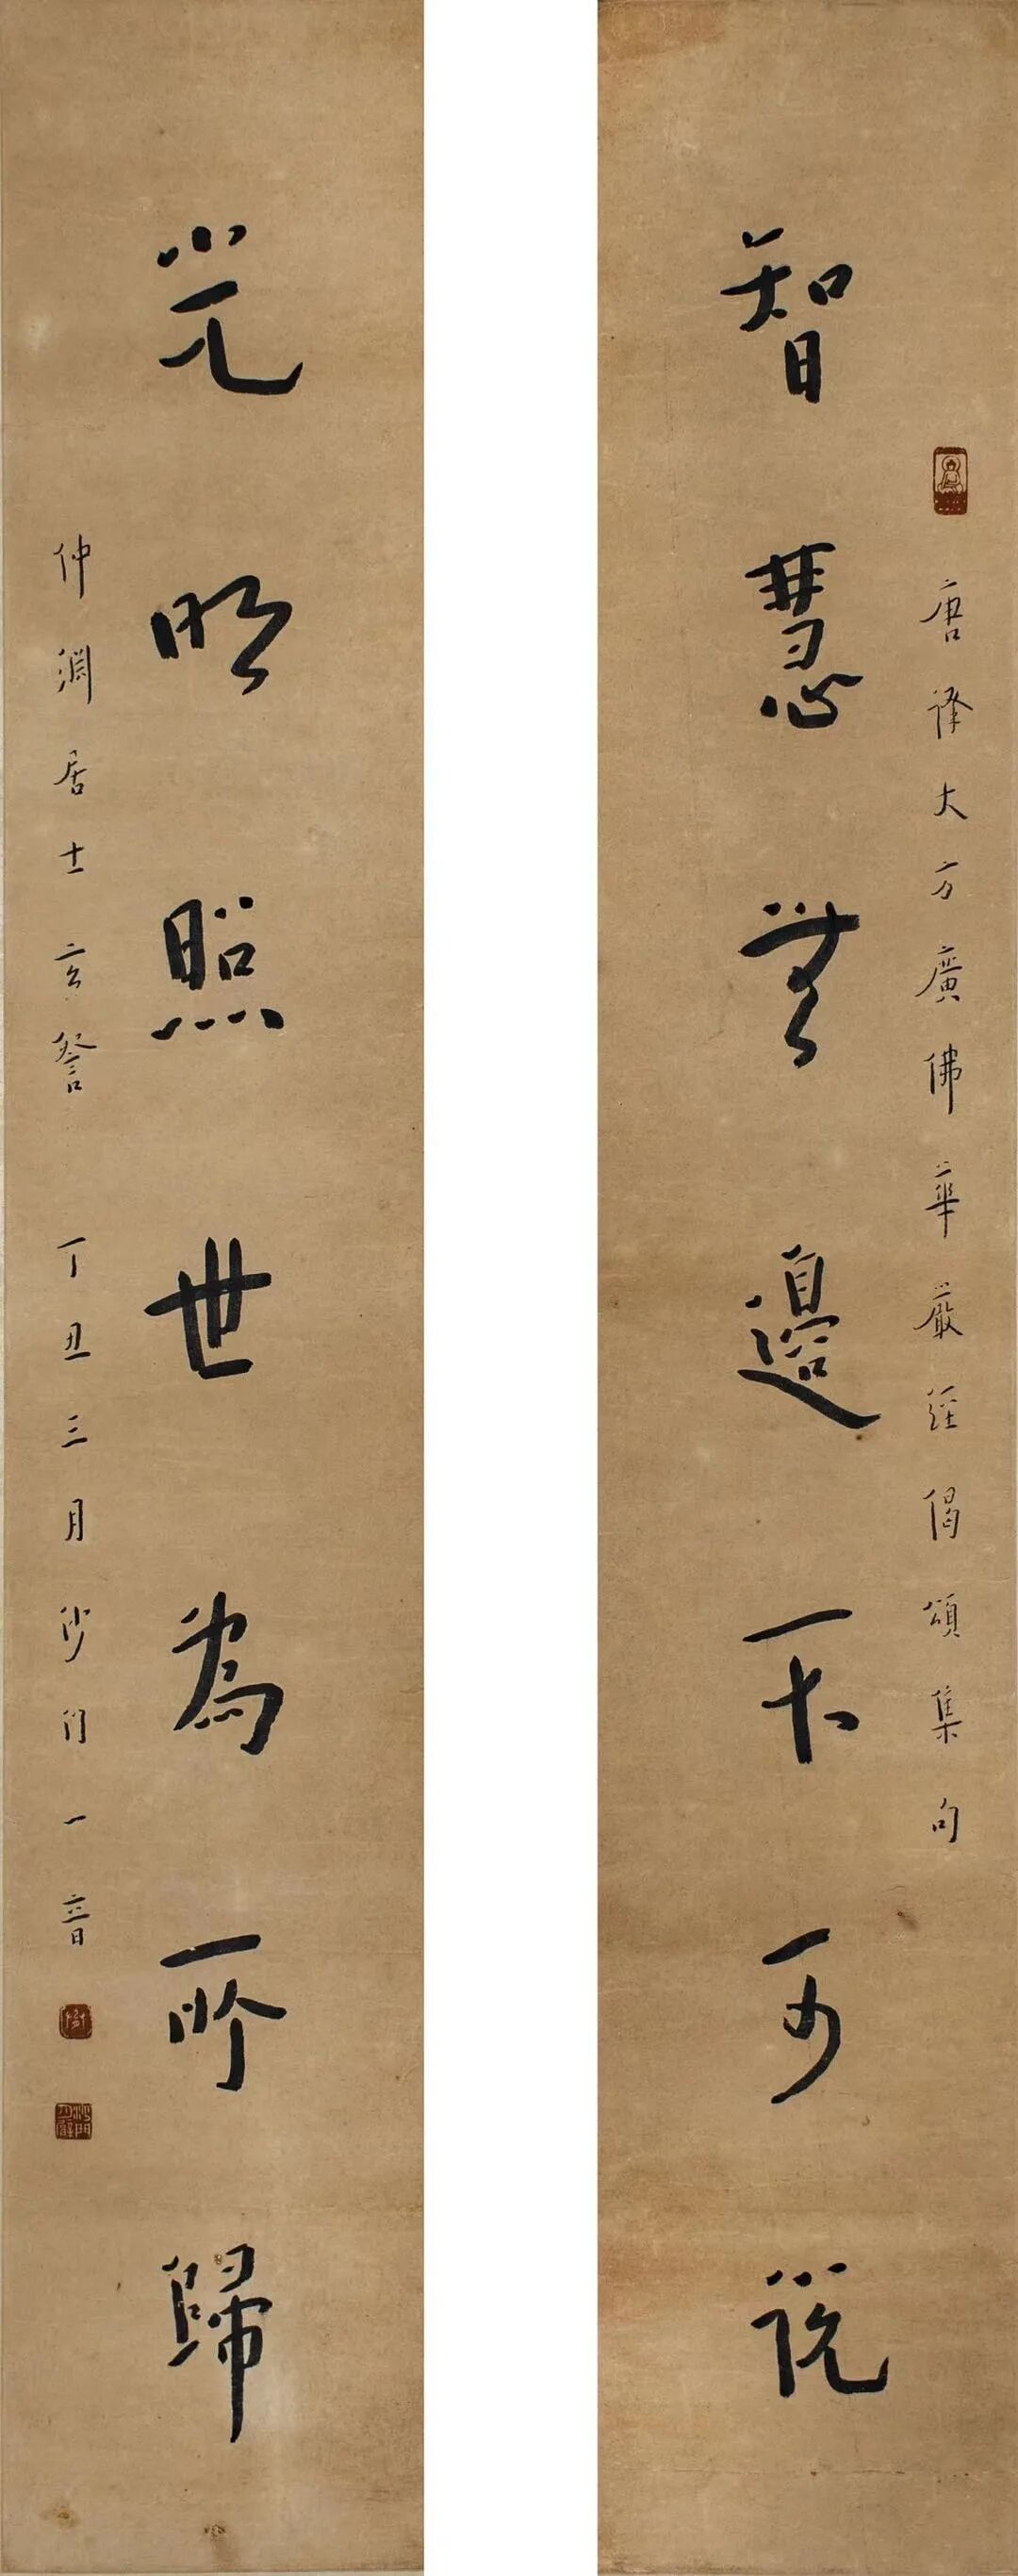 唐譯大方廣佛華嚴經偈頌集句
智慧無邊不可說
光明照世為所歸
仲淵居士玄詧 丁丑三月沙門一音